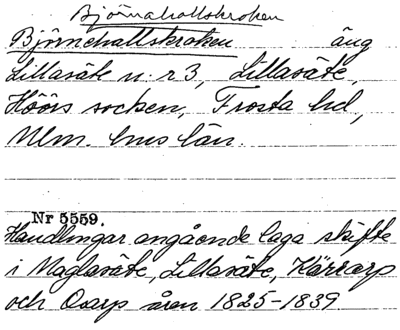 Björnahallskroken
Björnehallskroken äng
Lillasäte n:r 3, Lillasäte,
Höörs socken, Frosta hd,
Mlm. hus län.
Nr 5559.
Handlingar angående laga skifte
i Maglasäte, Lillasäte, Kärrarp
och Osarp åren 1825-1839